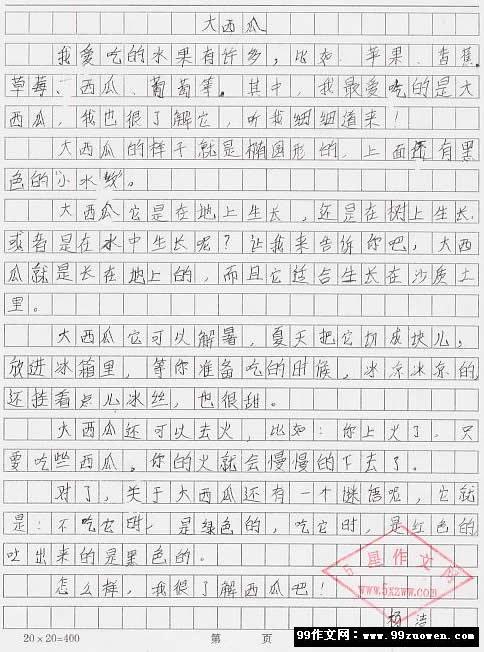 大西瓜
我爱吃的水果有许多，比如：苹果、香蕉、
草莓、西瓜、葡萄等。其中，我最爱吃的是大
西瓜，我也很了解它，听我细细道来！
大西瓜的样子就是椭圆形的，上面还有黑
色的“小水纹”。
大西瓜它是在地上生长，还是在树上生长，
或者是在水中生长呢？让我来告诉你吧，大西
瓜就是长在地上的，而且它适合生长在沙质土
里。
大西瓜它可以解暑，夏天把它切成块儿，
放进冰箱里，等你准备吃的时候，冰凉冰凉的，
还挂着点儿冰丝，也很甜。
大西瓜还可以去火，比如：你上火了，只
要吃些西瓜，你的火就会慢慢的下去了。
对了，关于大西瓜还有一个谜语呢，它就
是：不吃它时，是绿色的，吃它时，是红色的，
吐出来的是黑色的。
怎么样，我很了解西瓜吧！
5星作文网
www.5xzww.com
杨洁
20×20=400 第 页
99作文网：www.99zuowen.com